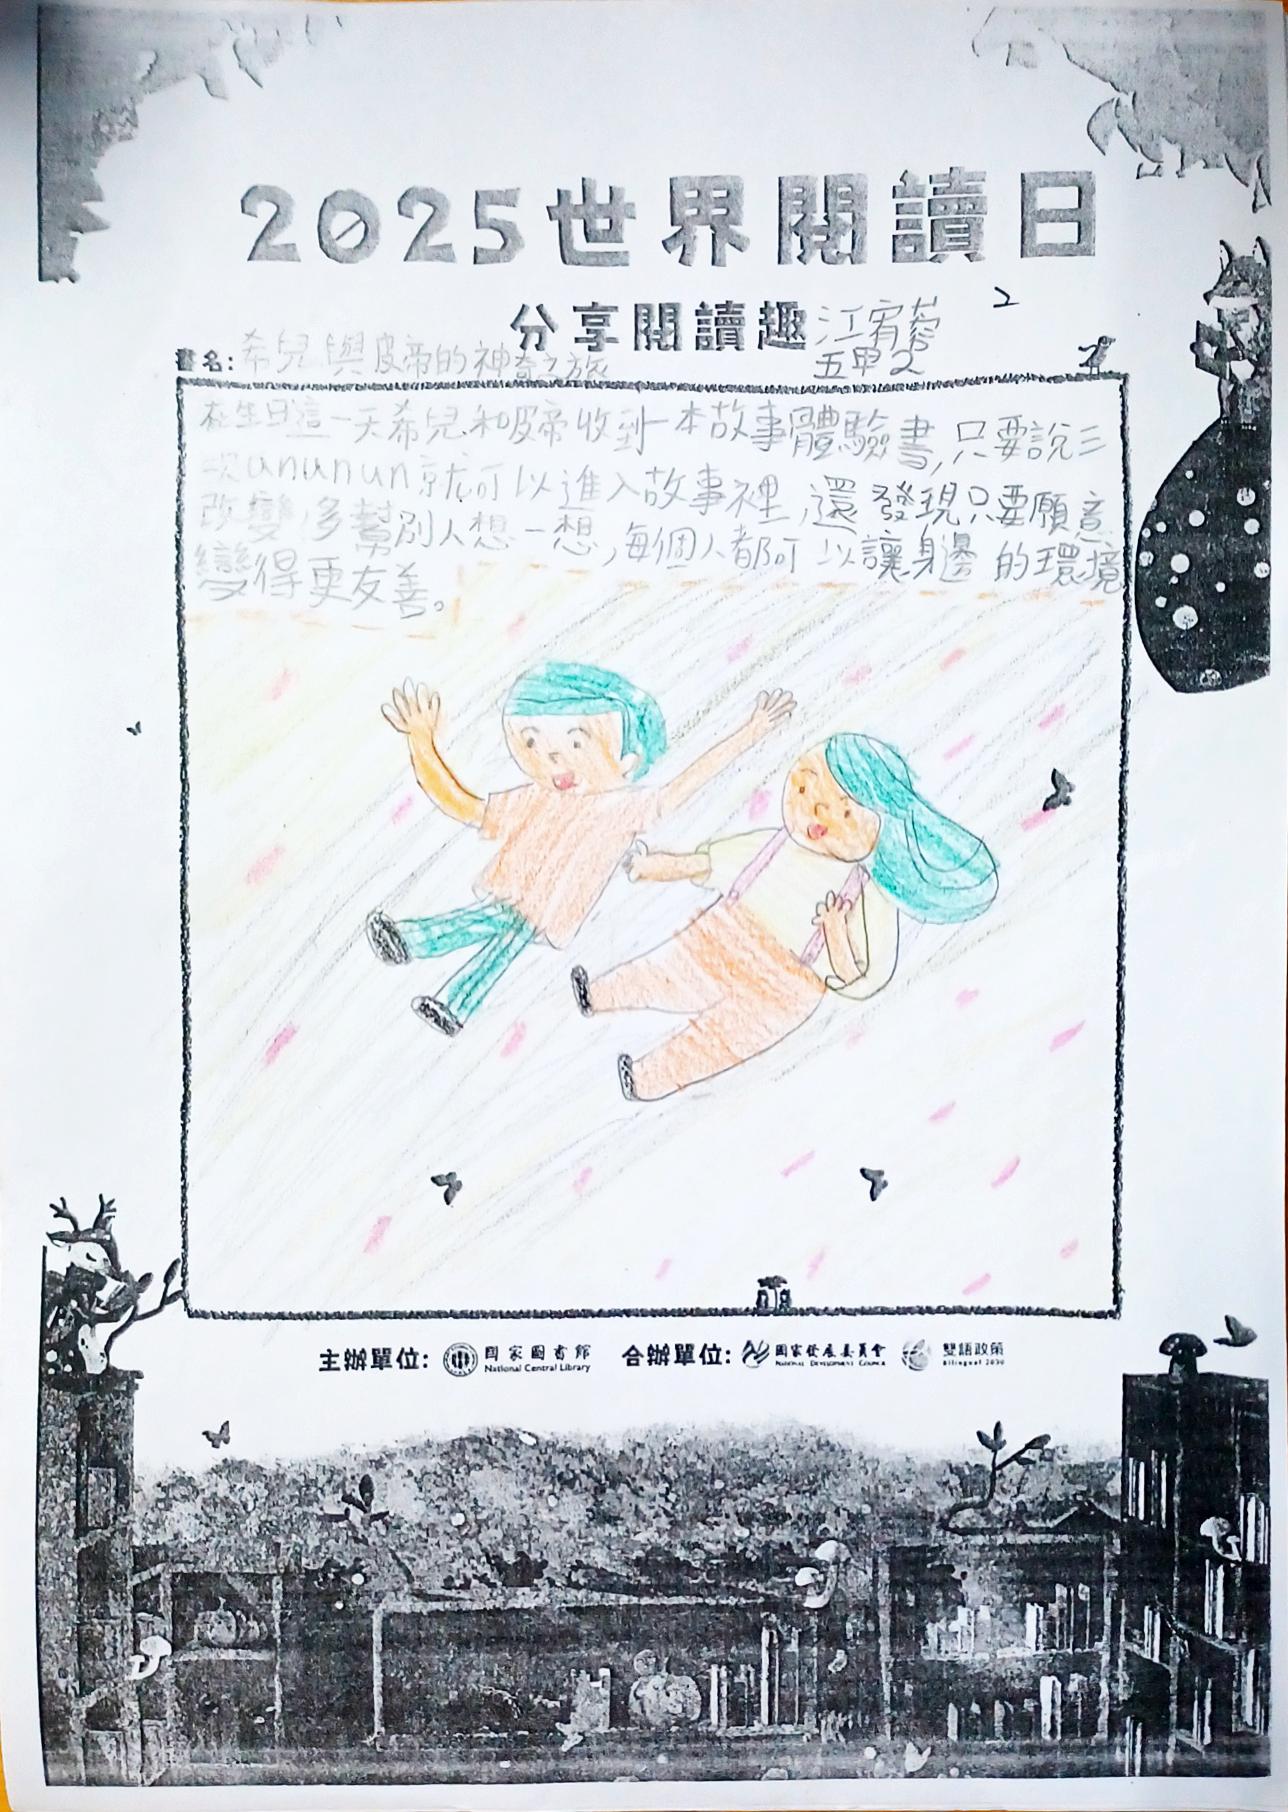 2025世界閱讀日
分享閱讀趣
江宥蓉
2
五甲2
書名:希兒與皮帝的神奇之旅
在生日這一天希兒和皮帝收到一本故事體驗書,只要說三
次unununun就可以進入故事裡,還發現只要願意
改變,多幫別人想一想,每個人都可以讓身邊的環境
變得更友善。
主辦單位: 國家圖書館 合辦單位: 國家發展委員會 雙語政策
National Central Library National Development Council Bilingual 2030